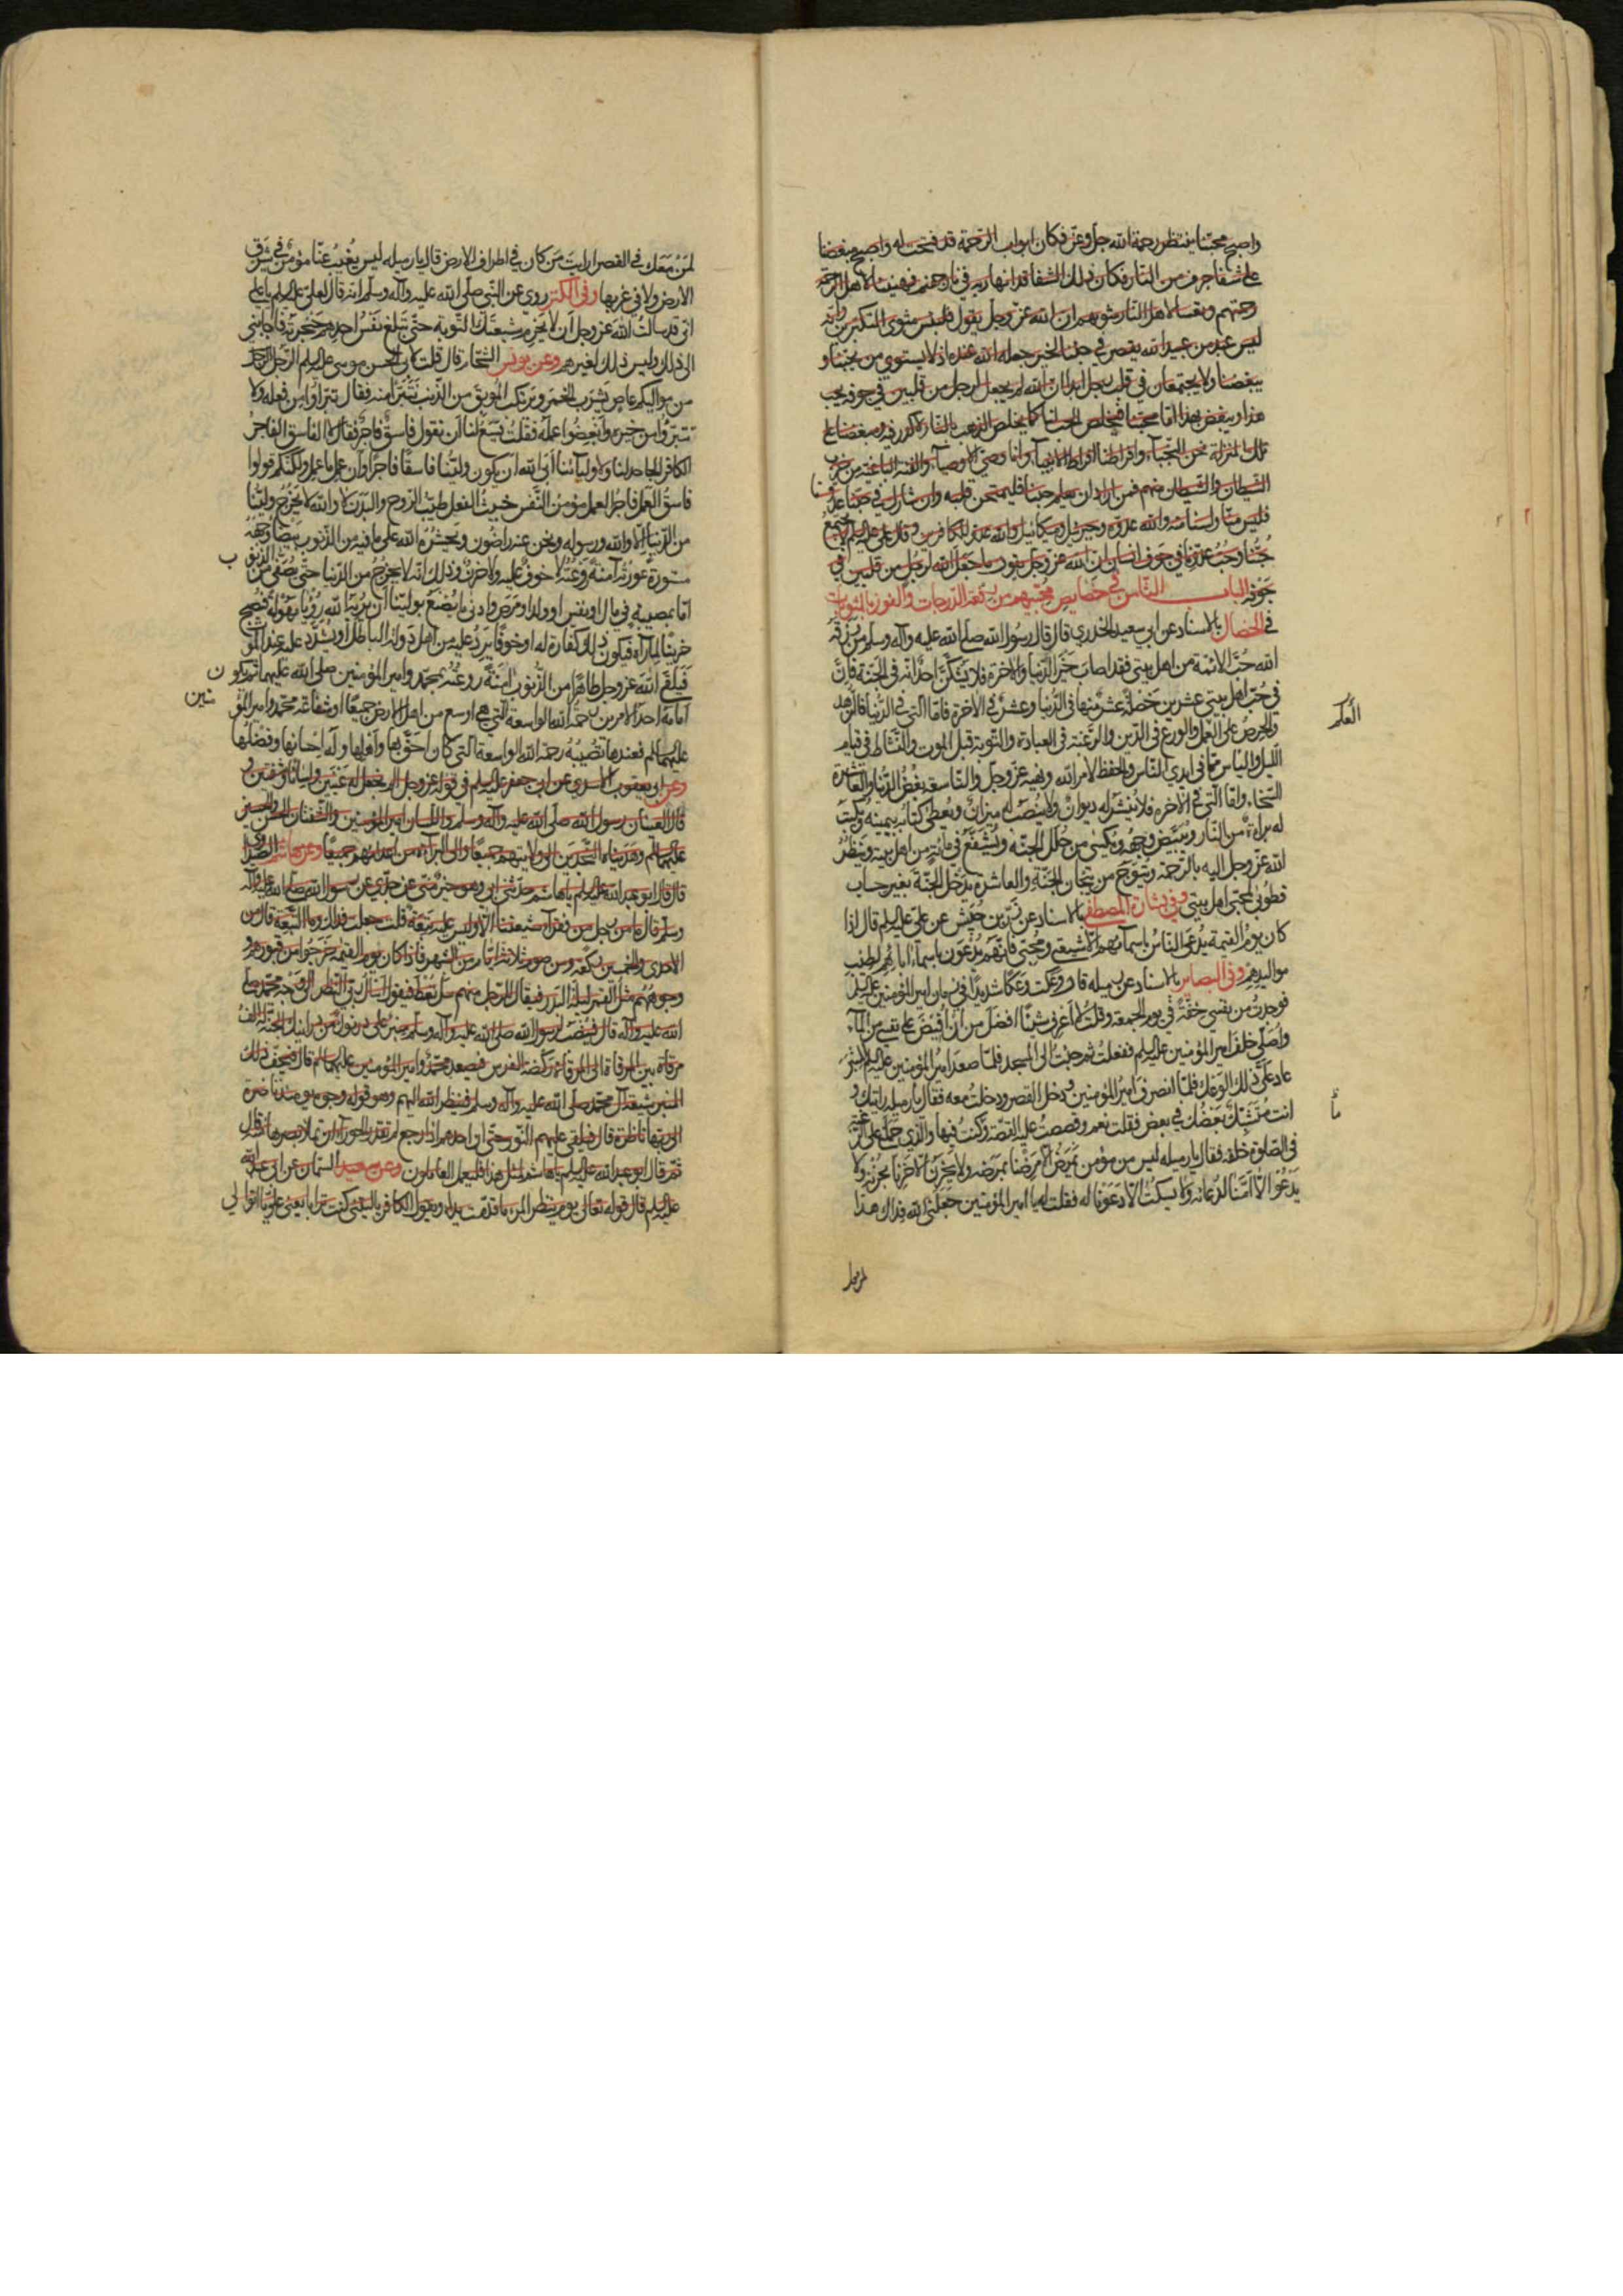 واصبح محبنا ينتظر رحمة الله جل وعز فكان ابواب الرحمة قد فتحت له واصبح مبغضنا
على شفا جرف من النار فكان ذلك الشفا قد انهار به في نار جهنم فهنيئا لاهل الرحمة
رحمتهم وتعسا لاهل النار مثويهم ان الله عز وجل يقول فلبئس مثوى المتكبرين وانه
ليس عبد من عبيد الله يقصر في حبنا لخير جعله الله عنده اذ لا يستوي من يحبنا و
يبغضنا ولا يجتمعان في قلب رجل ابدا ان الله لم يجعل لرجل من قلبين في جوفه يحب
هذا ويبغض بهذا اما محبنا فيخلص الحب لنا كما يخلص الذهب بالنار لا كدر فيه ومبغضنا على
تلك المنزلة نحن النجباء وافراطنا افراط الانبياء وانا وصي الاوصياء والفئة الباغية من حزب
الشيطان والشيطان منهم فمن اراد ان يعلم حبنا فليمتحن قلبه وان شارك في حبنا عدونا
فليس منا ولسنا منه والله عدوه وجبرئيل وميكائيل والله عدو للكافرين وقال علي عليه السلم لا يجتمع
حبنا وحب عدونا في جوف انسان ان الله عز وجل يقول ما جعل الله لرجل من قلبين في
جوفه الباب الثامن في خصايص محبيهم من رفعة الدرجات والفوز بالمثوبات
في الخصال بالاسناد عن ابي سعيد الخدري قال قال رسول الله صلى الله عليه وآله وسلم من رزقه
الله حب الائمة من اهل بيتي فقد اصاب خير الدنيا والاخرة فلا يشكن احد انه في الجنة فان
في حب اهل بيتي عشرين خصلة عشر منها في الدنيا وعشر في الاخرة فاما التي في الدنيا فالزهد
والحرص على العمل والورع في الدين والرغبة في العبادة والتوبة قبل الموت والنشاط في قيام
العلم
الليل والياس مما في ايدي الناس والحفظ لامر الله ونهيه عز وجل والتاسعة بغض الدنيا والعاشرة
السخاء واما التي في الاخرة فلا ينشر له ديوان ولا ينصب له ميزان ويعطى كتابه بيمينه ويكتب
له براءة من النار ويبيض وجهه ويكسى من حلل الجنة ويشفع في مائة من اهل بيته وينظر
الله عز وجل اليه بالرحمة ويتوج من تيجان الجنة والعاشرة يدخل الجنة بغير حساب
فطوبى لمحبي اهل بيتي وفي بشارة المصطفى بالاسناد عن زر بن حبيش عن علي عليه السلم قال اذا
كان يوم القيمة يدعى الناس باسمائهم الا شيعتي ومحبي فانهم يدعون باسماء ابائهم لطيب
مواليدهم وفي البصاير بالاسناد عن رميله قال وعكت وعكا شديدا في زمان امير المؤمنين عليه السلم
فوجدت من نفسي خفة في يوم الجمعة وقلت لا اعرف شيئا افضل من ان افيض على نفسي من الماء
واصلي خلف امير المؤمنين عليه السلم ففعلت ثم جئت الى المسجد فلما صعد امير المؤمنين عليه السلم المنبر
عاد علي ذلك الوعك فلما انصرف امير المؤمنين ودخل القصر ودخلت معه فقال يا رميله رايتك و
انت متشبك بعضك في بعض فقلت نعم وقصصت عليه القصة وكنت فيها والذي حملني على الرغبة
في الصلوة خلفه فقال يا رميله ليس من مؤمن يمرض الا مرضنا بمرضه ولا يحزن الا حزنا بحزنه ولا
يدعوا الا امنا لدعائه ولا يسكت الا دعونا له فقلت له يا امير المؤمنين جعلني الله فداك هذا
لمن معك في القصر ارايت من كان في اطراف الارض قال يا رميله ليس يغيب عنا مؤمن في شرق
الارض ولا في غربها وفي الكنز روي عن النبي صلى الله عليه وآله وسلم انه قال لعلي عليه السلم يا علي
اني قد سالت الله عز وجل ان لا يحرم شيعتك التوبة حتى تبلغ نفس احدهم حنجرته فاجابني
الى ذلك وليس ذلك لغيرهم وعن يونس الشحام قال قلت لابي الحسن موسى عليه السلم الرجل
من مواليكم عاص يشرب الخمر ويرتكب الموبق من الذنب نتبرا منه فقال تبراوا من فعله ولا
تتبرؤا من خيره وابغضوا عمله فقلت يسع لنا ان نقول فاسق فاجر فقال لا الفاسق الفاجر
الكافر الجاحد لنا ولاوليائنا ابى الله ان يكون ولينا فاسقا فاجرا وان عمل ما عمل ولكنكم قولوا
فاسق العمل فاجر العمل مؤمن النفس خبيث الفعل طيب الروح والبدن لا والله لا يخرج ولينا
من الدنيا الا والله ورسوله ونحن عنه راضون ويحشره الله على ما فيه من الذنوب مبيضا وجهه
مستورة عورته آمنة روعته لا خوف عليه ولا حزن وذلك انه لا يخرج من الدنيا حتى يصفى من الذنوب
اما بمصيبة في مال او نفس او ولد او مرض وادنى ما يصنع بولينا ان يريه الله رؤيا مهولة فيصبح
حزينا لما رآه فيكون ذلك كفارة له او خوفا يرد عليه من اهل دولة الباطل او يشدد عليه عند الموت
فيلقى الله عز وجل طاهرا من الذنوب آمنة روعته بمحمد وامير المؤمنين صلى الله عليهما ثم يكون
امامه احد الامرين رحمة الله الواسعة التي هي اوسع من اهل الارض جميعا او شفاعة محمد وامير المؤمنين
عليهما السلم فعندها تصيبه رحمة الله الواسعة التي كان احق بها واهلها وله احسانها وفضلها
وعن ابي يعقوب الاسدي عن ابي جعفر عليه السلم في قوله عز وجل الم نجعل له عينين ولسانا وشفتين
قال العينان رسول الله صلى الله عليه وآله وسلم واللسان امير المؤمنين والشفتان الحسن والحسين
عليهما السلم وهديناه النجدين الى ولايتهم جميعا والى البراءة من اعدائهم جميعا وعن هاشم الصيداوي
قال قال ابو عبد الله عليه السلم يا هاشم حدثني ابي وهو خير مني عن جدي عن رسول الله صلى الله عليه وآله
وسلم قال ما من رجل من فقراء شيعتنا الا وليس عليه تبعة قلت جعلت فداك وما التبعة قال من
الاحدى والخمسين ركعة ومن صوم ثلاثة ايام من الشهر فاذا كان يوم القيمة خرجوا من قبورهم و
وجوههم مثل القمر ليلة البدر فيقال للرجل منهم سل تعط فيقول اسال ربي النظر الى وجه محمد صلى
الله عليه وآله قال فينصب لرسول الله صلى الله عليه وآله وسلم منبر على درنوك من درانيك الجنة له الف
مرقاة بين المرقاة الى المرقاة ركضة الفرس فيصعد محمد وامير المؤمنين عليهما السلم قال فيحف ذلك
المنبر شيعة آل محمد صلى الله عليه وآله وسلم فينظر الله اليهم وهو قوله وجوه يومئذ ناضرة
الى ربها ناظرة قال فيلقى عليهم النور حتى ان احدهم اذا رجع لم تقدر الحوراء ان تملا بصرها منه قال
ثم قال ابو عبد الله عليه السلم يا هاشم لمثل هذا فليعمل العاملون وعن سعيد السمان عن ابي عبد الله
عليه السلم قال قوله تعالى يوم ينظر المرء ما قدمت يداه ويقول الكافر يا ليتني كنت ترابا يعني علويا اتوالى